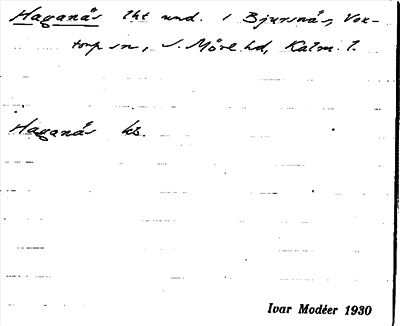 Haganäs lht und. 1 Bjursnäs, Vox-
torp sn, S. Möre hd, Kalm. l.
Haganäs ks.
Ivar Modéer 1930